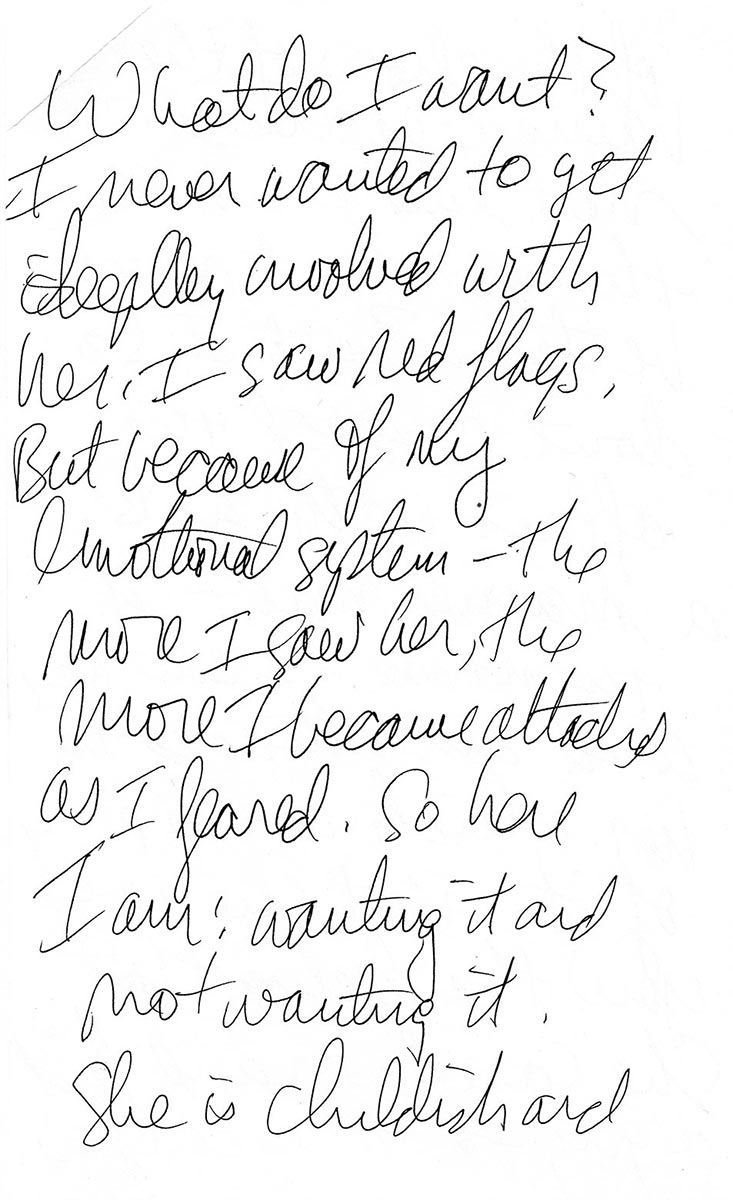 What do I want?
I never wanted to get
deeplley involved with
her. I saw red flags.
But because of my
emotional system – the
more I saw her, the
more I became attached
as I feared. So here
I am: wanting it and
not wanting it.
She is childish and